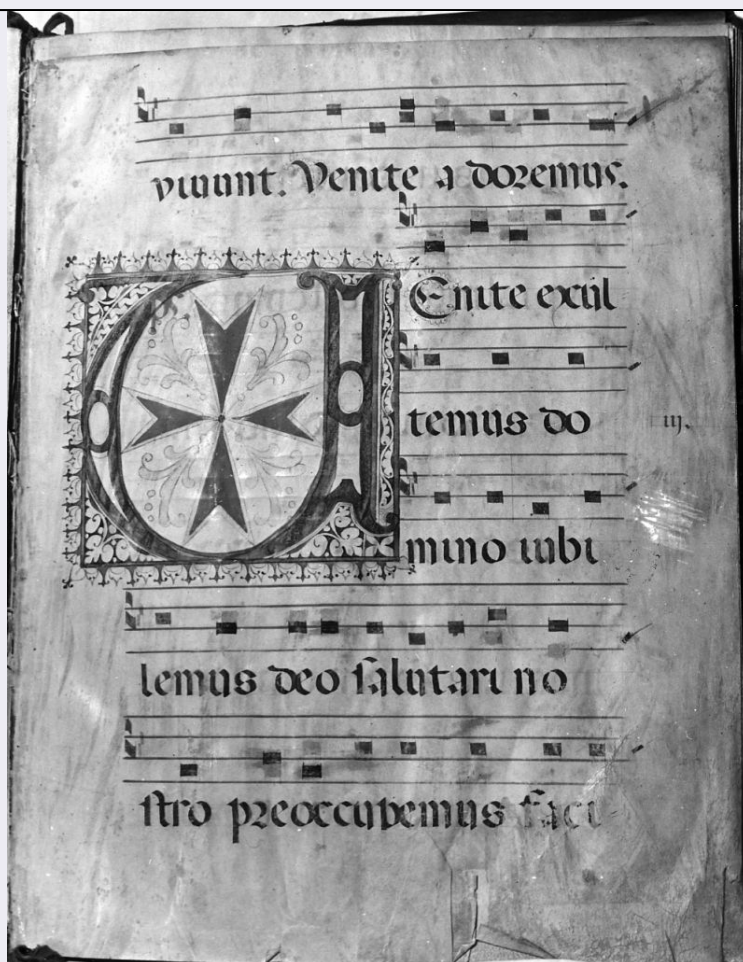 viuunt. Venite adoremus.
VEnite exul
temus do
iij.
mino iubi
lemus deo salutari no
stro preoccupemus faci